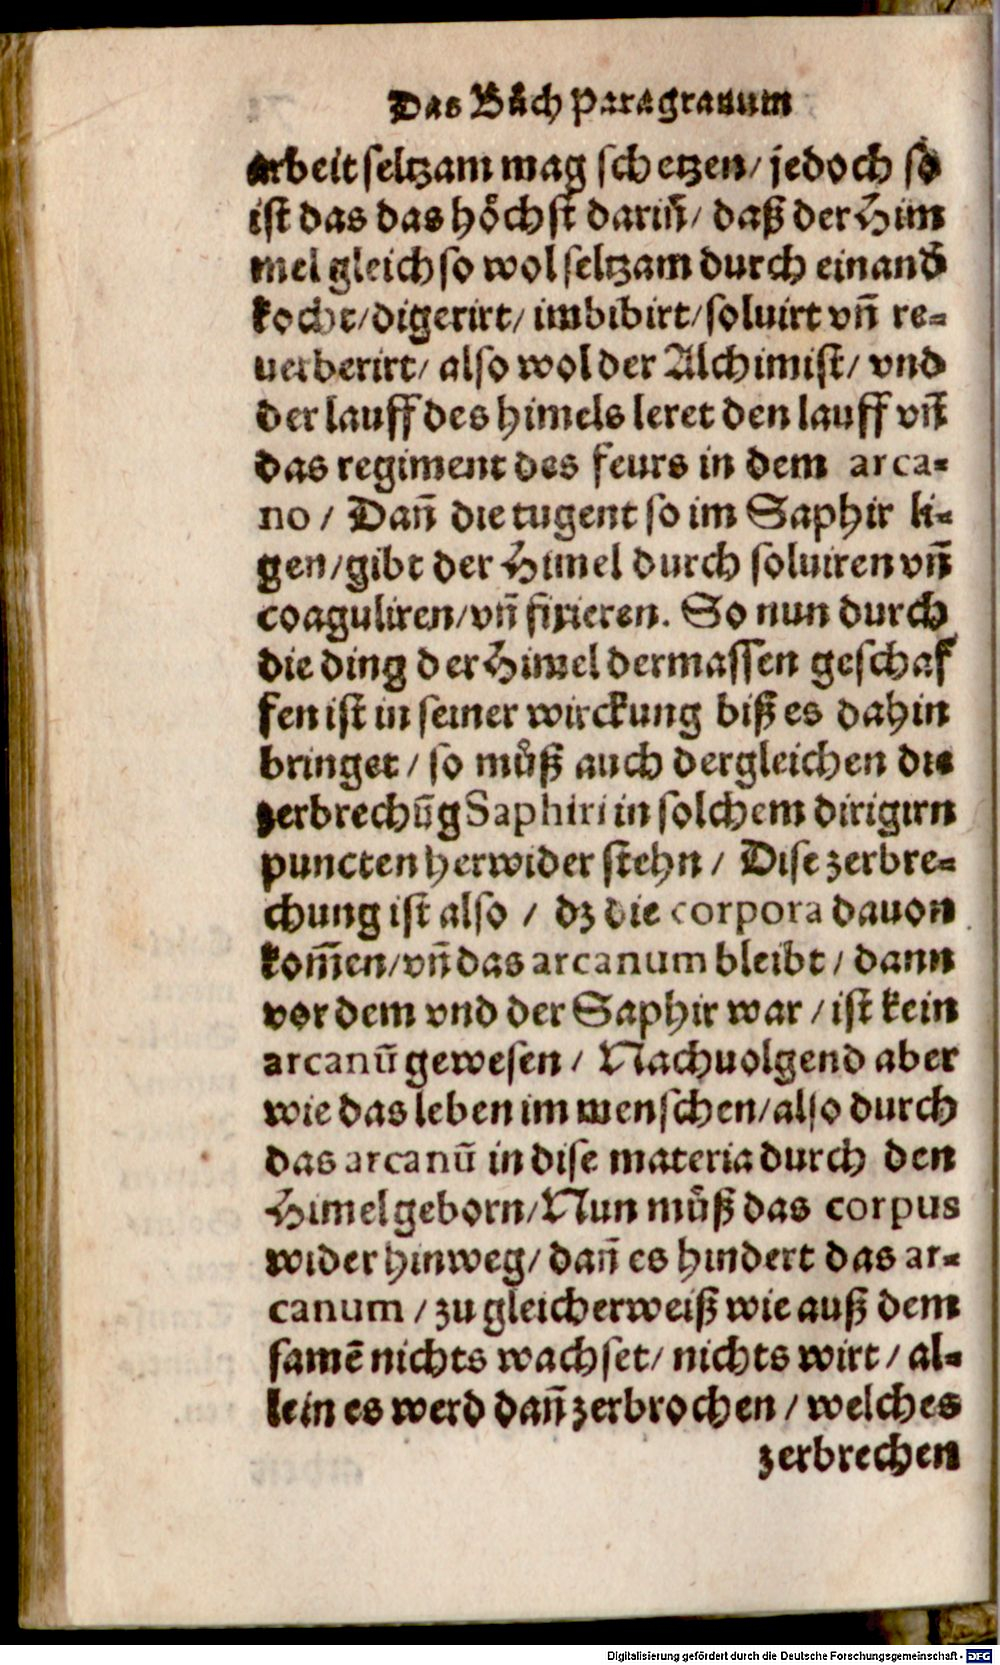 Das Bůch Paragranum
arbeit seltzam mag schetzen/ jedoch so
ist das das höchst dariñ/ daß der Him
mel gleich so wol seltzam durch einand
kocht/digerirt/ imbibirt/soluirt vñ re-
uerberirt/ also wol der Alchimist/ vnd
der lauff des himels leret den lauff vñ
das regiment des feurs in dem arca-
no / Dañ die tugent so im Saphir li-
gen/gibt der Himel durch soluiren vñ
coaguliren/vñ fixieren. So nun durch
die ding der Himel dermassen geschaf
fen ist in seiner wirckung biß es dahin
bringet / so můß auch dergleichen die
zerbrechũg Saphiri in solchem dirigirn
puncten herwider stehn / Dise zerbre-
chung ist also / dz die corpora dauon
kom̃en/vñ das arcanum bleibt / dann
vor dem vnd der Saphir war / ist kein
arcanũ gewesen / Nachuolgend aber
wie das leben im menschen/also durch
das arcanũ in dise materia durch den
Himel geborn/Nun můß das corpus
wider hinweg/ dañ es hindert das ar-
canum / zu gleicherweiß wie auß dem
samẽ nichts wachset/ nichts wirt / al-
lein es werd dañ zerbrochen / welches
zerbrechen
Digitalisierung gefördert durch die Deutsche Forschungsgemeinschaft - DFG